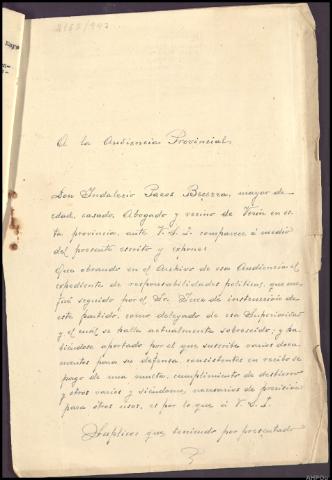 A la Audiencia Provincial.
Don Indalecio Pazos Becerra, mayor de
edad, casado, Abogado y vecino de Verin en es-
ta provincia, ante V.S.I. comparece á medio
del presente escrito y expone:
Que obrando en el Archivo de esa Audiencia el
expediente de responsabilidades políticas, que me
fué seguido por el Sr. Juez de instrucción de
este partido, como delegado de esa Superioridad
y el cual se halla actualmente sobreseido; y ha-
biéndose aportado por el que suscribe varios docu-
mentos para su defensa consistentes en recibo de
pago de una multa, cumplimiento de destierro
y otros varios y siéndome necesarios de precisión
para otros usos, es por lo que á V.S.I.
Suplico: que teniendo por presentado
AHPOu